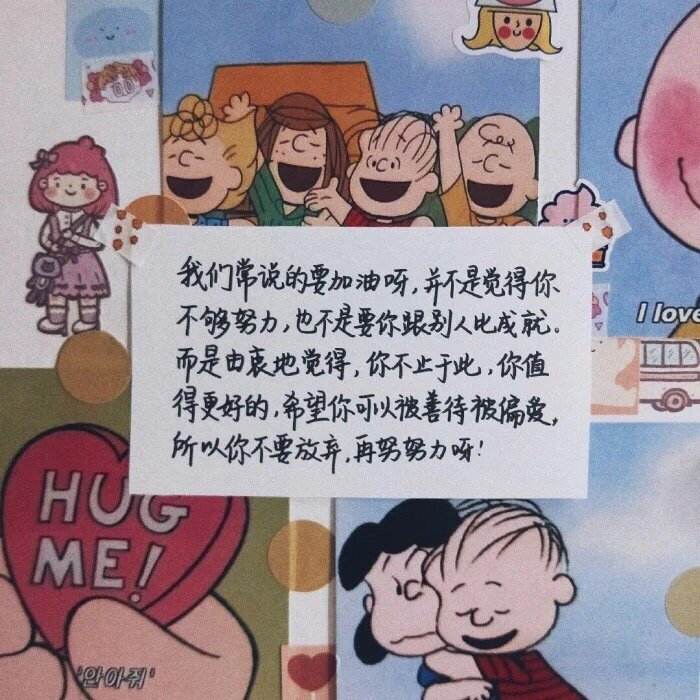 我们常说的要加油呀，并不是觉得你
不够努力，也不是要你跟别人比成就。
而是由衷地觉得，你不止于此，你值
得更好的，希望你可以被善待被偏爱，
所以你不要放弃，再努努力呀！
I love
HUG
ME!
'안아줘'